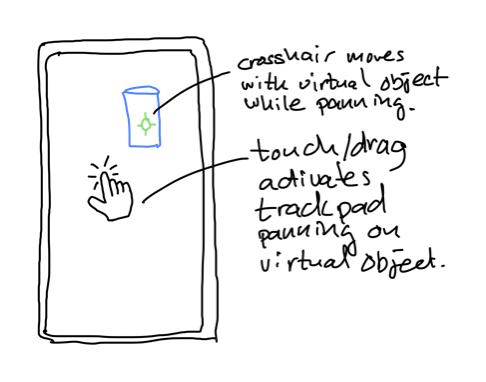 crosshair moves
with virtual object
while panning.
touch/drag
activates
trackpad
panning on
virtual object.